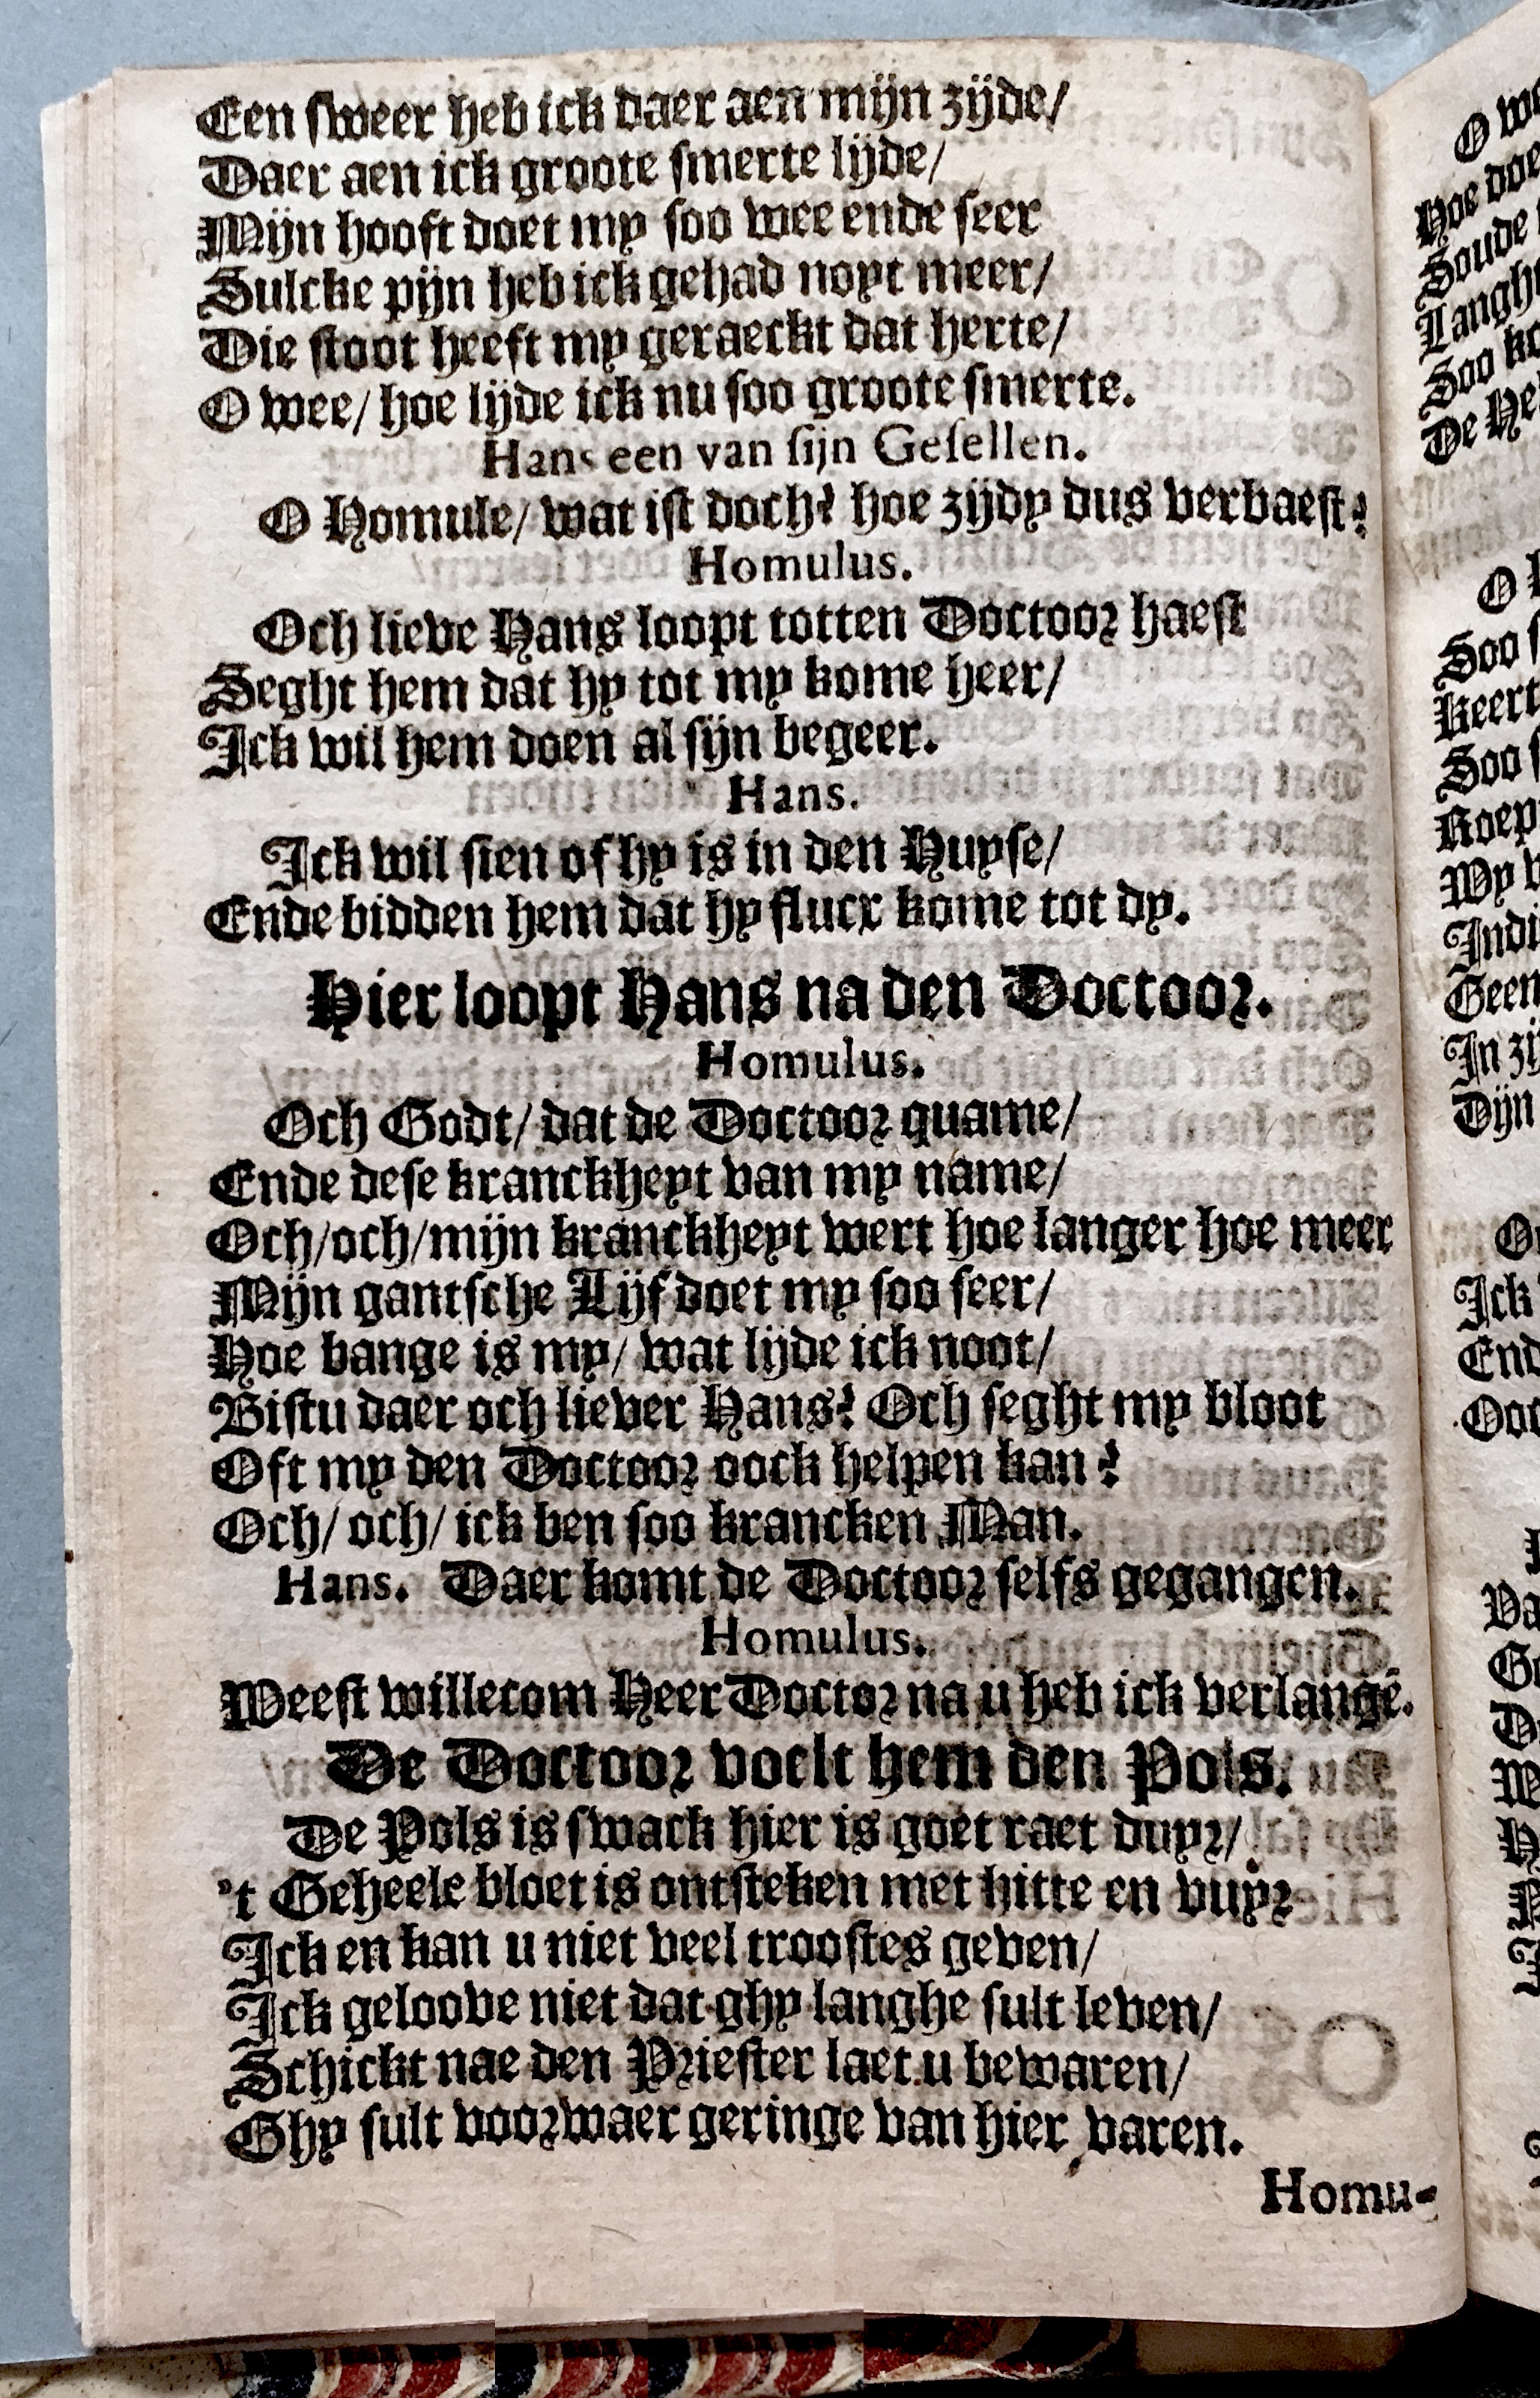 Een sweer heb ick daer aen mijn zijde/
Daer aen ick groote smerte lijde/
Mijn hooft doet my soo wee ende seer
Sulcke pijn heb ick gehad noyt meer/
Die stoot heeft my geraeckt dat herte/
O wee/ hoe lijde ick nu soo groote smerte.
Hans een van sijn Gesellen.
O Homule/ wat ist doch? hoe zijdy dus verbaest?
Homulus.
Och lieve Hans loopt totten Doctoor haest
Seght hem dat hy tot my kome heer/
Ick wil hem doen al sijn begeer.
Hans.
Ick wil sien of hy is in den Huyse/
Ende bidden hem dat hy flucx kome tot dy.
Hier loopt Hans na den Doctoor.
Homulus.
Och Godt/ dat de Doctoor quame/
Ende dese kranckheyt van my name/
Och/och/mijn kranckheyt wert hoe langer hoe meer
Mijn gantsche Lijf doet my soo seer/
Hoe bange is my/ wat lijde ick noot/
Bistu daer och liever Hans? Och seght my bloot
Oft my den Doctoor oock helpen kan?
Och/ och/ ick ben soo krancken Man.
Hans. Daer komt de Doctoor selfs gegangen.
Homulus.
Weest willecom Heer Doctor na u heb ick verlangē.
De Doctoor voelt hem den Pols.
De Pols is swack hier is goet raet duyr/
't Geheele bloet is ontsteken met hitte en vuyr
Ick en kan u niet veel troostes geven/
Ick geloove niet dat ghy langhe sult leven/
Schickt nae den Priester laet u bewaren/
Ghy sult voorwaer geringe van hier varen.
Homu-
O
Hoe doe
Soude
Langh
Soo
De He
O
Soo
Keert
Soo
Roep
My
Indi
Geen
In zij
Dijn
Ick
End